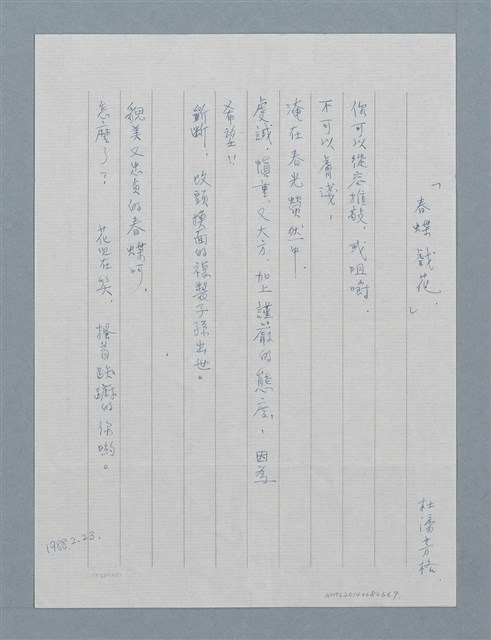 「春蝶戲花」
杜潘芳格
你可以從容推敲，或咀嚼，
不可以膚淺，
淹在春光瑩然中，
虔誠，慎重，又大方，加上謹嚴的態度，因為
希望！！
斷，改頭換面的複製子孫出世。
貌美又忠貞的春蝶呵，
怎麼了？ 花兒在笑， 搔首的你喲。
1988.2.23.